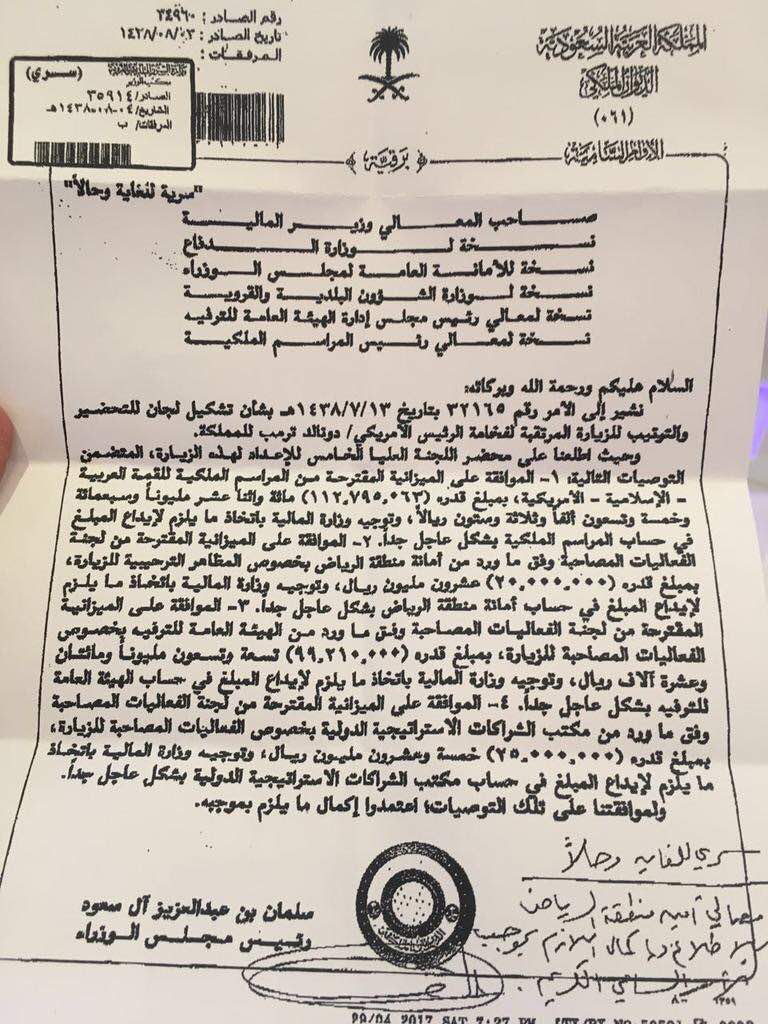 المملكة العربية السعودية
الديوان الملكي
(٠٦١)
الأوامر السامية
رقم الصادر : ٣٤٩٦٠
تاريخ الصادر : ١٤٣٨/٠٨/٠٣
المرفقات :
(سري)
مكتب الوزير
الصادر/ ٣٥٩١٤
التاريخ/ ٠٤-٠٨-١٤٣٨هـ
المرفقات/ ب
برقية
"سرية للغاية وحالاً"
صاحب المعالي وزير المالية
نسخة لوزارة الدفاع
نسخة للأمانة العامة لمجلس الوزراء
نسخة لوزارة الشؤون البلدية والقروية
نسخة لمعالي رئيس مجلس إدارة الهيئة العامة للترفيه
نسخة لمعالي رئيس المراسم الملكية
السلام عليكم ورحمة الله وبركاته:
نشير إلى الأمر رقم ٣٢١٦٥ بتاريخ ١٤٣٨/٧/١٣هـ بشأن تشكيل لجان للتحضير
والترتيب للزيارة المرتقبة لفخامة الرئيس الأمريكي/ دونالد ترمب للمملكة.
وحيث اطلعنا على محضر اللجنة العليا الخامس للإعداد لهذه الزيارة، المتضمن
التوصيات التالية: ١- الموافقة على الميزانية المقترحة من المراسم الملكية للقمة العربية
- الإسلامية - الأمريكية، بمبلغ قدره (١١٢,٧٩٥,٠٦٣) مائة واثنا عشر مليوناً وسبعمائة
وخمسة وتسعون ألفاً وثلاثة وستون ريالاً، وتوجيه وزارة المالية باتخاذ ما يلزم لإيداع المبلغ
في حساب المراسم الملكية بشكل عاجل جداً. ٢- الموافقة على الميزانية المقترحة من لجنة
الفعاليات المصاحبة وفق ما ورد من أمانة منطقة الرياض بخصوص المظاهر الترحيبية للزيارة،
بمبلغ قدره (٢٠,٠٠٠,٠٠٠) عشرون مليون ريال، وتوجيه وزارة المالية باتخاذ ما يلزم
لإيداع المبلغ في حساب أمانة منطقة الرياض بشكل عاجل جداً. ٣- الموافقة على الميزانية
المقترحة من لجنة الفعاليات المصاحبة وفق ما ورد من الهيئة العامة للترفيه بخصوص
الفعاليات المصاحبة للزيارة، بمبلغ قدره (٩٩,٢١٠,٠٠٠) تسعة وتسعون مليوناً ومائتان
وعشرة آلاف ريال، وتوجيه وزارة المالية باتخاذ ما يلزم لإيداع المبلغ في حساب الهيئة العامة
للترفيه بشكل عاجل جداً. ٤- الموافقة على الميزانية المقترحة من لجنة الفعاليات المصاحبة
وفق ما ورد من مكتب الشراكات الاستراتيجية الدولية بخصوص الفعاليات المصاحبة للزيارة،
بمبلغ قدره (٢٥,٠٠٠,٠٠٠) خمسة وعشرون مليون ريال، وتوجيه وزارة المالية باتخاذ
ما يلزم لإيداع المبلغ في حساب مكتب الشراكات الاستراتيجية الدولية بشكل عاجل جداً.
ولموافقتنا على تلك التوصيات؛ اعتمدوا إكمال ما يلزم بموجبه.
سلمان بن عبدالعزيز آل سعود
رئيس مجلس الوزراء
سري للغاية وحالاً
معالي أمين منطقة الرياض
للاطلاع وإكمال اللازم بموجب
الأمر السامي الكريم.
29/04 2017 SAT 7:27 PM